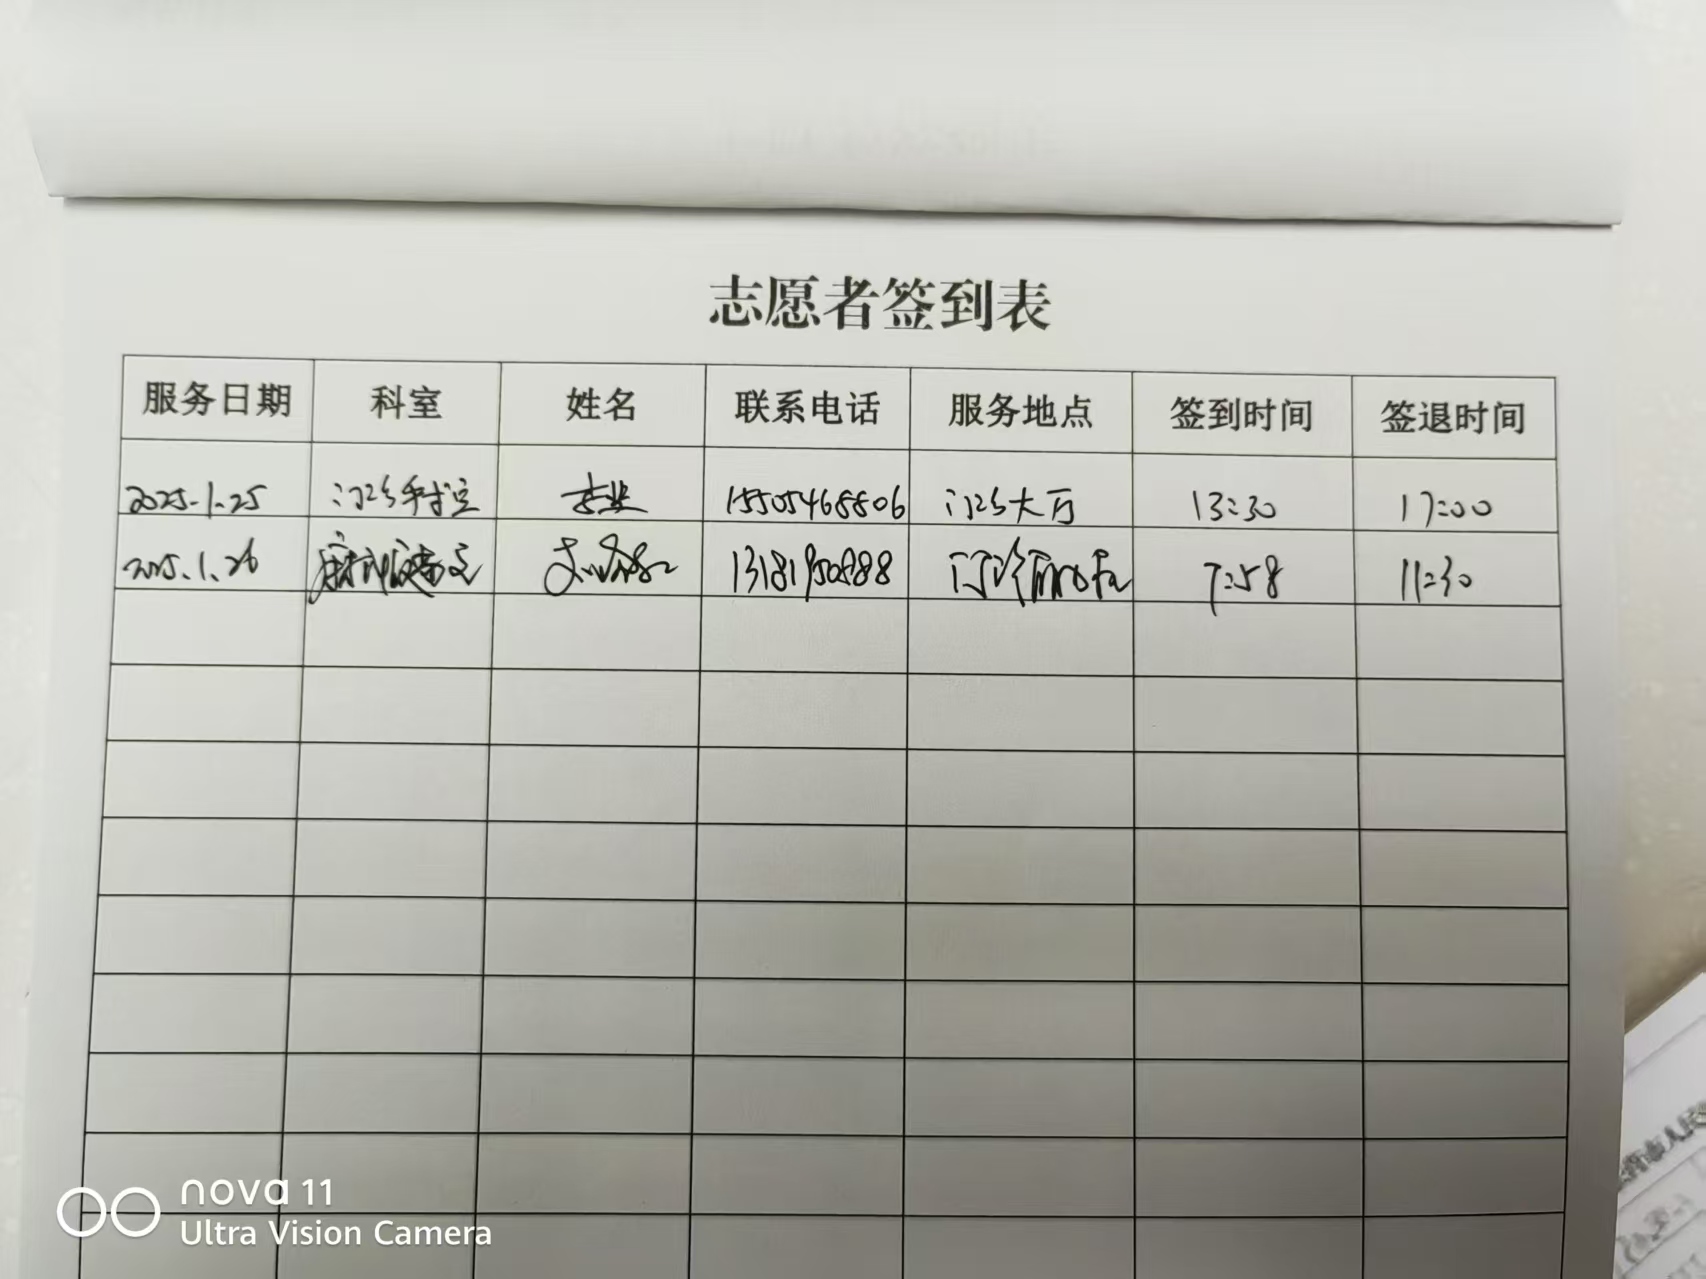 志愿者签到表
服务日期 科室 姓名 联系电话 服务地点 签到时间 签退时间
2025.1.25 门诊手术室 15505468806 门诊大厅 13:30 17:00
2025.1.26 13181950888 门诊 7:58 11:30
nova 11
Ultra Vision Camera